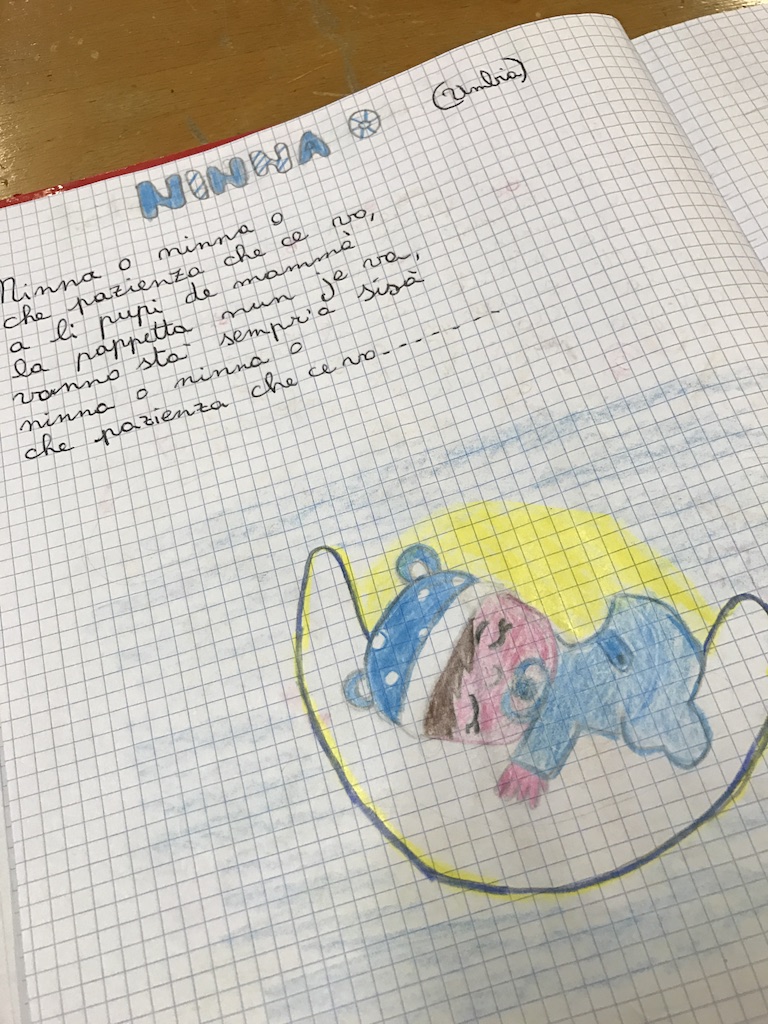 (Umbia)
NINNA O
Ninna o ninna o
che pazienza che ce vo,
a li pupi de mammà
la pappetta nun je va,
vanno sta' sempr'a sisà
ninna o ninna o
che pazienza che ce vo-------